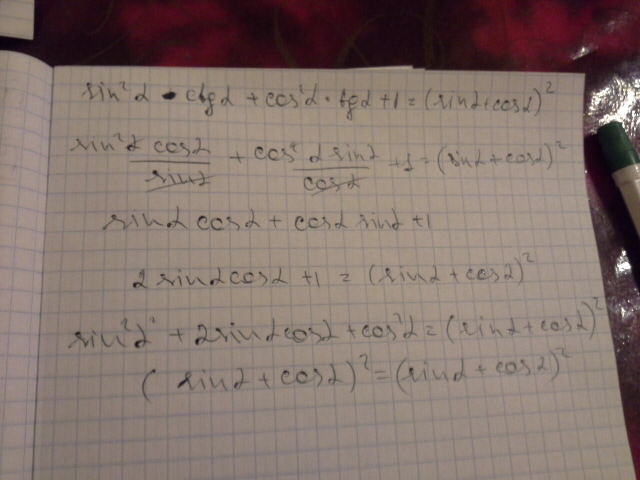 sin²α · ctgα + cos²α · tgα + 1 = (sinα + cosα)²
sin²α cosα / sinα + cos²α sinα / cosα + 1 = (sinα + cosα)²
sinα cosα + cosα sinα + 1
2 sinα cosα + 1 = (sinα + cosα)²
sin²α + 2sinα cosα + cos²α = (sinα + cosα)²
(sinα + cosα)² = (sinα + cosα)²